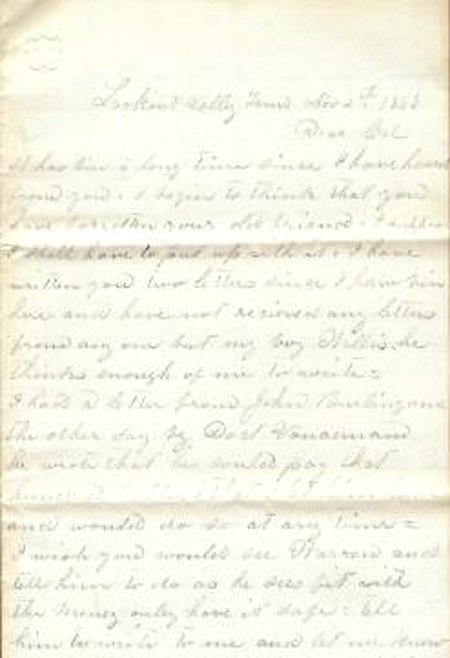 Lookout Vally Tenn Nov 2nd 1863
Dear Col
It has bin a long time since I have heard
from you. I begin to think that you
have forgotten your old friend. I suppose
I shall have to put up with it. I have
written you two letters since I have bin
here and have not recieved any letters
from any one but my boy Willis. he
thinks enough of me to write =
I had a letter from John Burlingame
the other day by Doct
he wrote that he would pay that
hundred
and would do so at any time =
I wish you would see Warren and
tell him to do as he sees fit with
the money only have it safe. tell
him to write to me and let me know